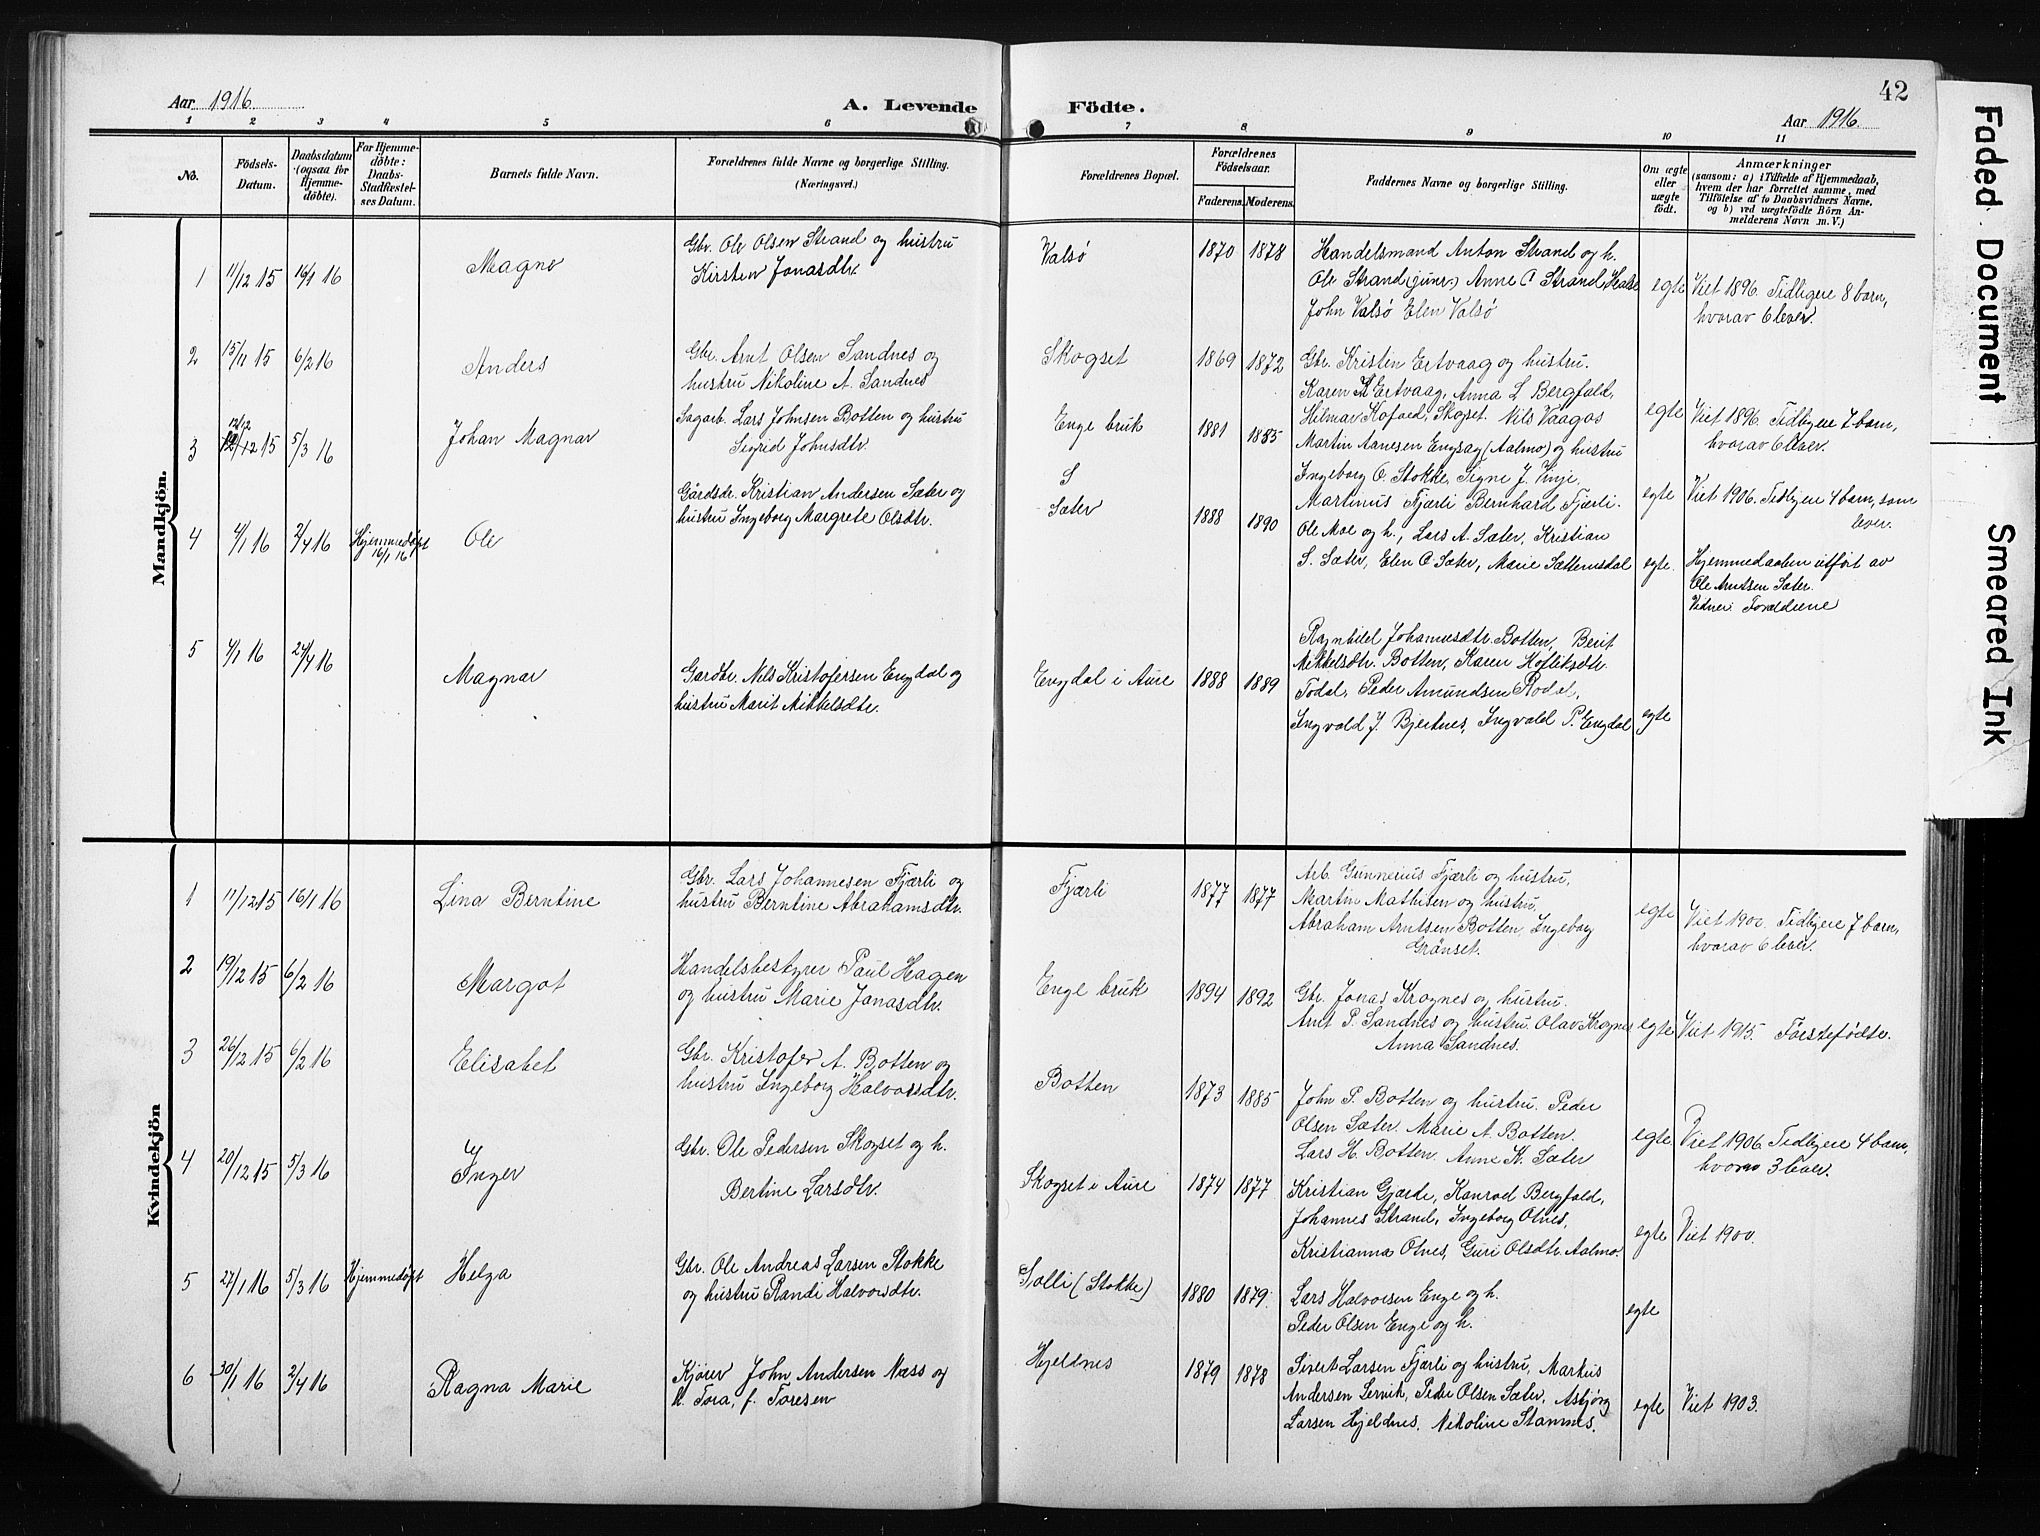 42
Aar 1916.
A. Levende Födte.
Aar 1916.
1 2 3 4 5 6 7 8 9 10 11
No.
Födsels-Datum.
Daabsdatum (ogsaa for Hjemmedöbte).
For Hjemmedöbte: Daabs-Stadfæstelses Datum.
Barnets fulde Navn.
Forældrenes fulde Navne og borgerlige Stilling.
(Næringsvei.)
Forældrenes Bopæl.
Forældrenes Födselsaar.
Faderens. Moderens.
Faddernes Navne og borgerlige Stilling.
Om ægte eller uægte födt.
Anmærkninger
(saasom: a) i Tilfælde af Hjemmedaab, hvem der har forrettet samme, med Tilföielse af to Daabsvidners Navne, og b) ved uægtefödte Börn Anmelderens Navn m.V.)
Mandkjön.
1 11/12 15 16/1 16 Magne
Gbr. Ole Olsen Strand og hustru
Kirsten Jonasdtr.
Valsø 1870 1878
Handelsmand Anton Strand og h.
Ole Strand (junr.) Anne O Strand, Halse
John Valsø Elen Valsø
egte
Viet 1896. Tidligere 8 barn,
hvorav 6 lever.
2 15/11 15 6/2 16 Anders
Gbr. Arnt Olsen Sandnes og
hustru Nikoline A. Sandnes
Skogset 1869 1872
Gbr. Kristen Ertvaag og hustru.
Karen Ertvaag, Anna L Bergfald,
Hilmar Kofoed, Skogset. Nils Vaagos
egte
Viet 1896. Tidligere 7 barn,
hvorav 6 lever.
3 12/12 15 5/3 16 Johan Magnar
Sagarb. Lars Johnsen Botten og hustru
Sigrid Johnsdtr.
Enge bruk 1881 1885
Martin Aanesen Engsag (Aalmo) og hustru
Ingeborg O. Stokke, Signe J. Vinje,
Martinus Fjærli Bernhard Fjærli.
egte
Viet 1906. Tidligere 4 barn, som
lever.
4 4/1 16 2/4 16 Hjemmedøpt
16/1 16
Ole
Gårdsdr. Kristian Andersen Sæter og
hustru Ingeborg Margrete Olsdtr.
S
Sæter 1888 1890
Ole Moe og h., Lars A. Sæter, Kristian
S. Sæter, Elen O Sæter, Marie Sætternsdal
egte.
Hjemmedaaben utført av
Ole Arntsen Sæter.
Vidner: Forældrene
5 4/1 16 24/4 16 Magnar
Gardbr. Nils Kristofersen Engdal og
hustru Marit Mikkelsdtr.
Engdal i Aure 1888 1889
Ragnhild Johannesdtr. Botten, Berit
Mikkelsdtr. Botten, Karen Hoflitsdtr.
Todal, Peder Amundsen Rodal,
Ingvald J. Bjertnes, Ingvald P. Engdal
egte
Kvindekjön
1 11/12 15 16/1 16 Lina Berntine
Gbr. Lars Johannesen Fjærli og
hustru Berntine Abrahamsdtr.
Fjærli 1877 1877
Arb. Gunnerius Fjærli og hustru,
Martin Mathisen og hustru,
Abraham Arntsen Botten, Ingeborg
Grønset.
egte
Viet 1900. Tidligere 7 barn,
hvorav 6 lever.
2 19/12 15 6/2 16 Margot
Handelsbestyrer Paul Hagen
og hustru Marie Jonasdtr.
Enge bruk 1894 1892
Gbr. Jonas Krognes og hustru.
Arnt P. Sandnes og hustru. Olav Krognes
Anna Sandnes.
egte
Viet 1915. Førstefødte.
3 26/12 15 6/2 16 Elisabet
Gbr. Kristofer A. Botten og
hustru Ingeborg Halvorsdtr.
Botten 1873 1885
John P. Botten og hustru. Peder
Olsen Sæter. Marie A. Botten.
Lars H. Botten. Anne K. Sæter
egte
Viet 1906 Tidligere 4 barn,
hvorav 3 lever.
4 20/12 15 5/3 16 Inger
Gbr. Ole Pedersen Skogset og h.
Bertine Larsdtr.
Skogset i Aure 1874 1877
Kristian Gjærde, Konrad Bergfald,
Johannes Strand, Ingeborg Otnes,
Kristianna Otnes, Guri Olsdtr. Aalmo.
egte
Viet 1900.
5 27/1 16 5/3 16 Hjemmedøpt Helga
Gbr. Ole Andreas Larsen Stokke
og hustru Randi Halvorsdtr.
Solli (Stokke) 1880 1879.
Lars Halvorsen Enge og h.
Peder Olsen Enge og h.
egte
6 30/1 16 2/4 16 Ragna Marie
Kjører John Andersen Næss og
h. Tora, f. Toresen
Hjeldnes 1879 1878
Sivert Larsen Fjærli og hustru, Markus
Andersen Lervik, Peder Olsen Sæter, Asbjørg
Larsen Hjeldnes, Nikoline Stamnes.
egte
Viet 1903.
Faded Document
Smeared Ink